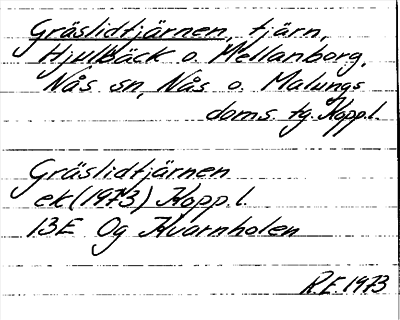 Gräslidtjärnen, tjärn,
Hjulbäck o. Mellanborg,
Nås sn, Nås o. Malungs
doms. tg. Kopp.l.
Gräslidtjärnen
ek (1973) Kopp.l.
13E 0g Kvarnholen
R.F. 1973